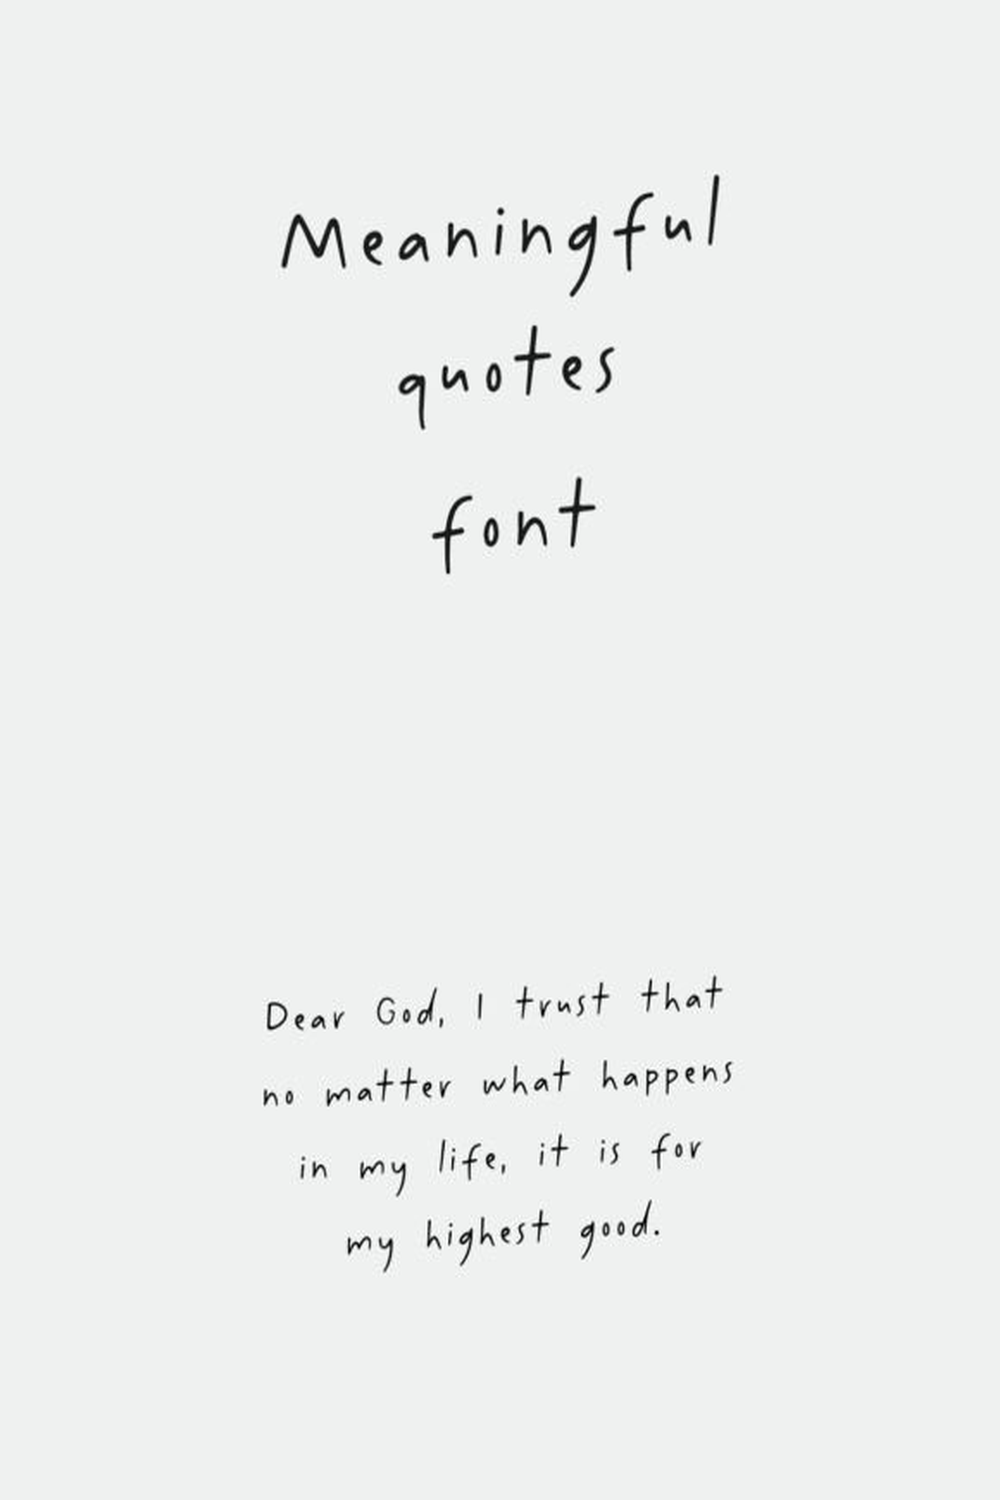 Meaningful
quotes
font
Dear God, I trust that
no matter what happens
in my life, it is for
my highest good.